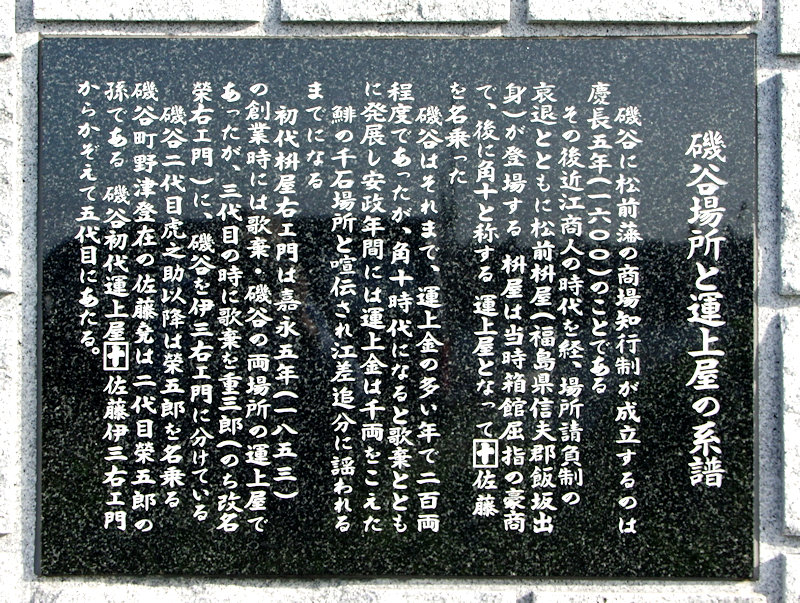 磯谷場所と運上屋の系譜
磯谷に松前藩の商場知行制が成立するのは
慶長五年(一六〇〇)のことである
その後近江商人の時代を経、場所請負制の
衰退とともに松前枡屋(福島県信夫郡飯坂出
身)が登場する 枡屋は当時箱館屈指の豪商
で、後に角十と称する 運上屋となって 佐藤
を名乗った
磯谷はそれまで、運上金の多い年で二百両
程度であったが、角十時代になると歌棄ととも
に発展し安政年間には運上金は千両をこえた
鯡の千石場所と喧伝され江差追分に謡われる
までになる
初代枡屋右エ門は嘉永五年(一八五三)
の創業時には歌棄・磯谷の両場所の運上屋で
あったが、三代目の時に歌棄を重三郎(のち改名
榮右エ門)に、磯谷を伊三右エ門に分けている
磯谷二代目虎之助以降は榮五郎を名乗る
磯谷町野津登在の佐藤堯は二代目榮五郎の
孫である 磯谷初代運上屋 佐藤伊三右エ門
からかぞえて五代目にあたる。